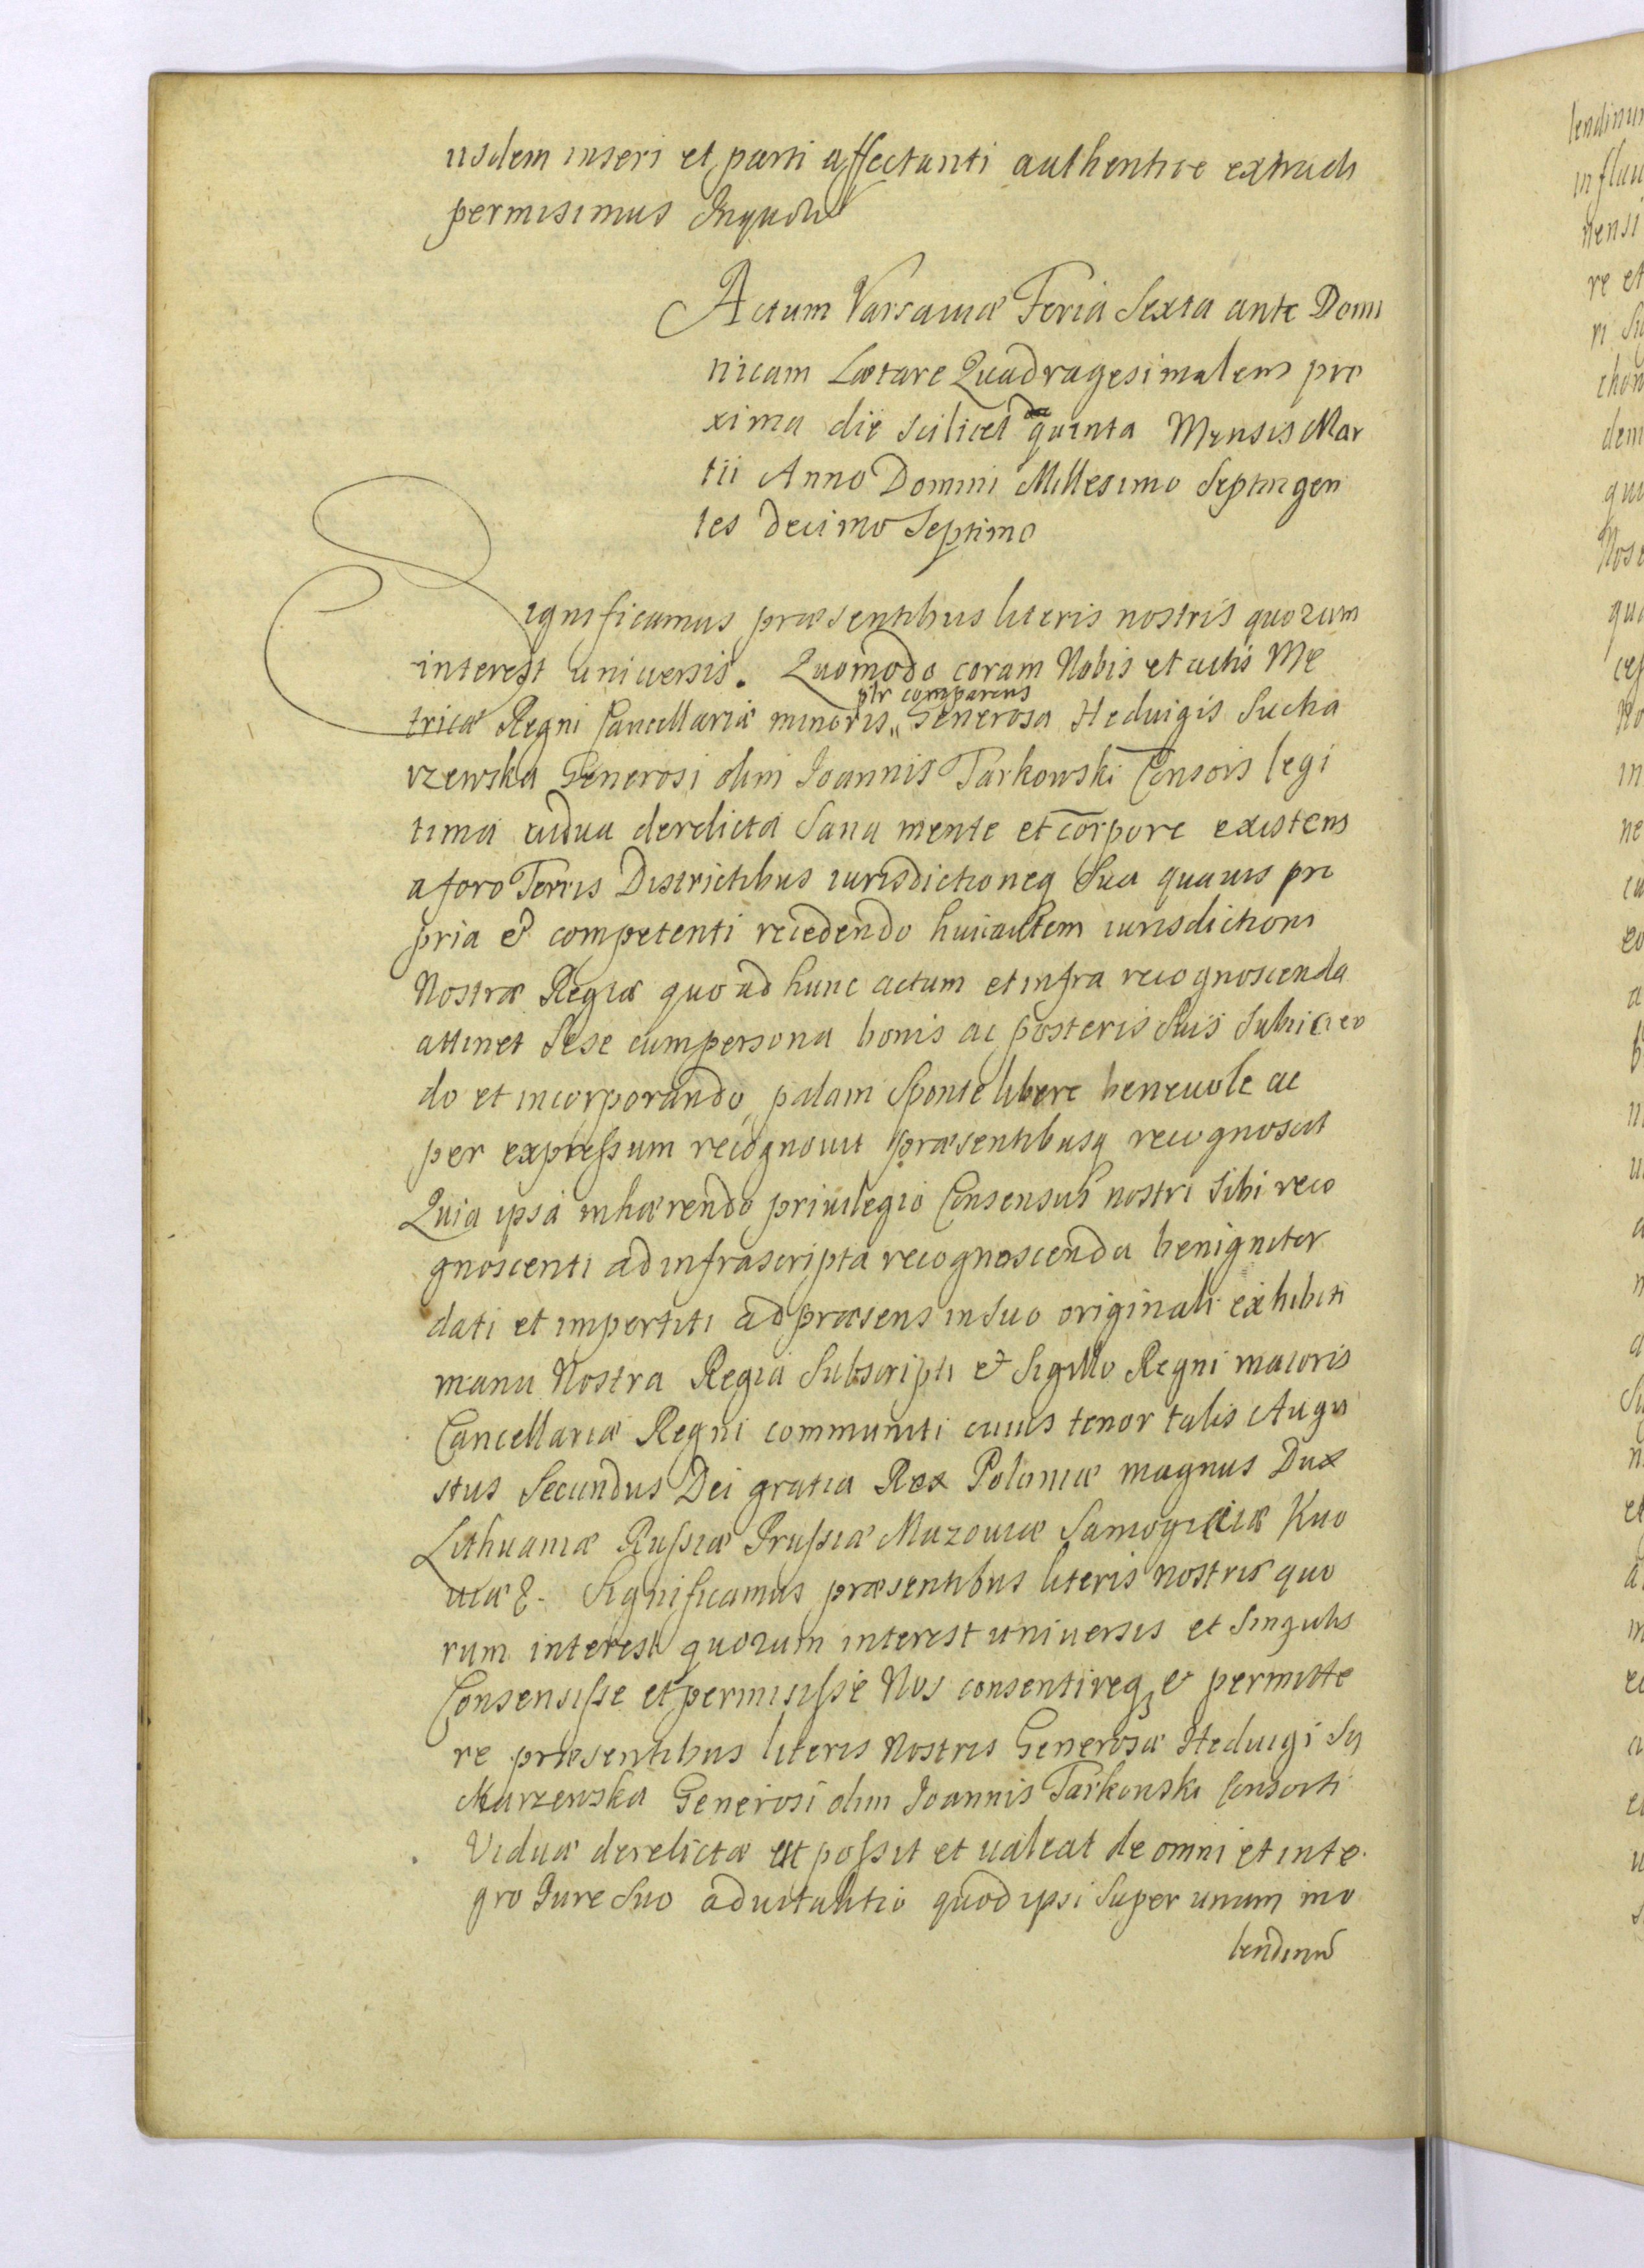 iisdem inseri et parti affectanti authentice extradi
permisimus Inquibus
Actum Varsaviæ Feria Sexta ante Domi
nicam Lætare Quadragesimalem pro
xima die scilicet quinta Mensis Mar
tii Anno Domini Millesimo Septingen
tes decimo Septimo
Significamus præsentibus literis nostris quorum
interest universis. Quomodo coram Nobis et actis Me
ptr comparens
tricæ Regni Cancellariæ minoris „ Generosa Heduigis Sucha
rzewska Generosi olim Joannis Tarkowski Consors legi
tima vidua derelicta Sana mente et corpore existens
a foro Terris Districtibus iurisdictioneq Sua quavis pro
pria et competenti recedendo huic autem iurisdictioni
Nostræ Regiæ quo ad hunc actum et infra recognoscenda
attinet Sese cum persona bonis ac posteris Suis Subiicien
do et incorporando, palam Sponte libere benevole ac
per expressum recognovit præsentibusq recognoscit
Quia ipsa inhærendo privilegio Consensus nostri Sibi reco
gnoscenti ad infrascripta recognoscenda benigniter
dati et impertiti ad præsens in Suo originali exhibiti
manu Nostra Regia Subscripti et Sigillo Regni maioris
Cancellariæ Regni communiti cuius tenor talis Augu
stus Secundus Dei gratia Rex Poloniæ magnus Dux
Lithuaniæ Russiæ Prussiæ Mazoviæ Samogitiæ Kiio
viæ &. Significamus præsentibus literis nostris quo
rum interest quorum interest universis et Singulis
Consensisse et permisisse Nos consentireq et permitte
re præsentibus literis Nostris Generosæ Heduigi Su
charzewska Generosi olim Joannis Tarkowski Consorti
Viduæ derelictæ ut possit et valeat de omni et inte
gro Jure Suo advitalitio quod ipsi Super unum mo
lendinu